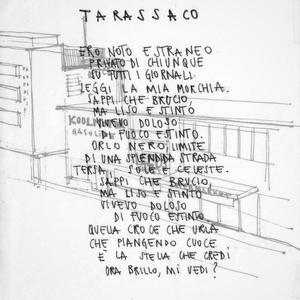 TARASSACO
ERO NOTO ESTRANEO
PRIVATO DI CHIUNQUE
SU TUTTI I GIORNALI
LEGGI LA MIA MORCHIA.
SAPPI CHE BRUCIO,
MA LISO E STINTO
VIVEVO DOLOSO
DI FUOCO ESTINTO.
ORLO NERO, LIMITE
DI UNA SPLENDIDA STRADA
TERSA, SOLE E CELESTE.
SAPPI CHE BRUCIO
MA LISO E STINTO
VIVEVO DOLOSO
DI FUOCO ESTINTO
QUELLA CROCE CHE URLA
CHE PIANGENDO CUOCE
È LA STELLA CHE CREDI
ORA BRILLO, MI VEDI?